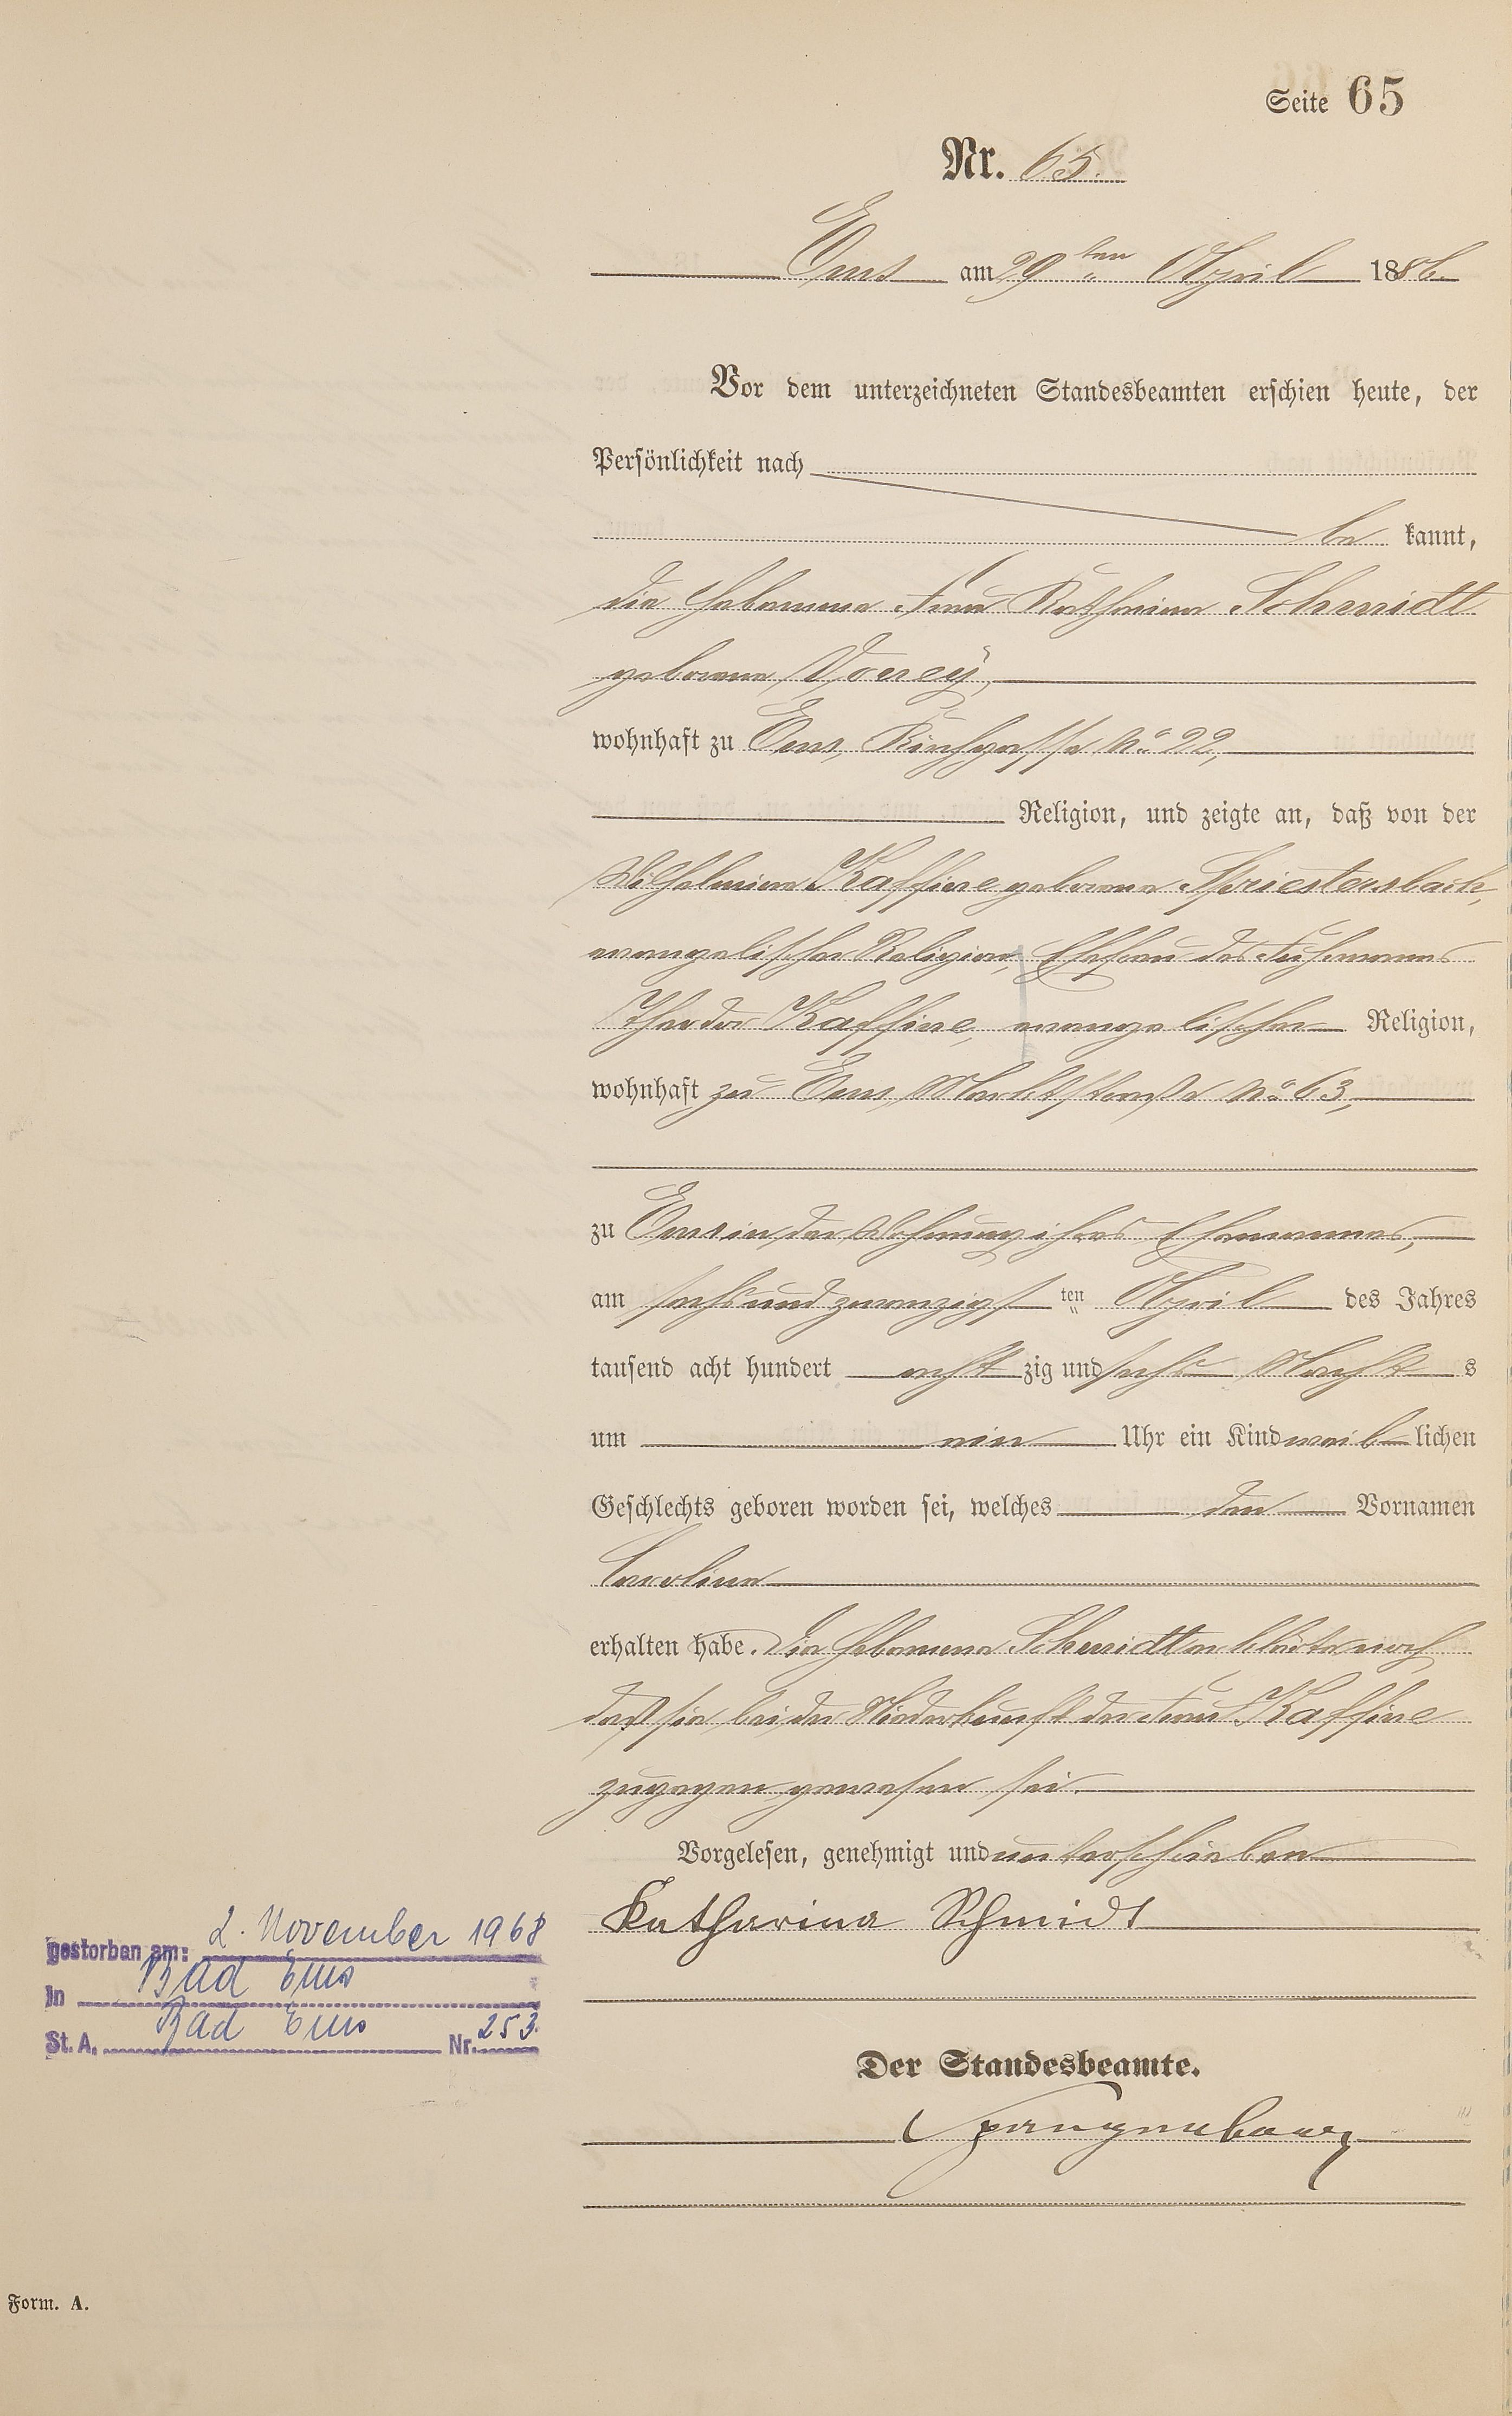 Seite 65
Nr. 65.
Ems am 29ten April 1886.
Vor dem unterzeichneten Standesbeamten erschien heute, der
Persönlichkeit nach
be kannt,
die Hebamme Frau Katharina Schmidt
geborene
wohnhaft zu Ems, Kirchgasse No 22,
Religion, und zeigte an, daß von der
Wilhelmine Kaffine geborene Spriestersbach,
evangelischer Religion, Ehefrau des Fuhrmanns
Theodor Kaffine, evangelischer Religion,
wohnhaft zu Ems, Marktstraße No 63,
zu Ems in der Wohnung ihres Ehemannes,
am sechsundzwanzigsten April des Jahres
tausend acht hundert acht zig und sechs Nachts
um ein Uhr ein Kind weiblichen
Geschlechts geboren worden sei, welches den Vornamen
Caroline
erhalten habe. Die Hebamme Schmidt erklärte noch,
daß sie bei der Niederkunft der Frau Kaffine
zugegen gewesen sei.
Vorgelesen, genehmigt und unterschrieben
Katharina Schmidt
gestorben am: 2. November 1968
in Bad Ems
St. A. Bad Ems Nr. 253.
Der Standesbeamte.
Form. A.